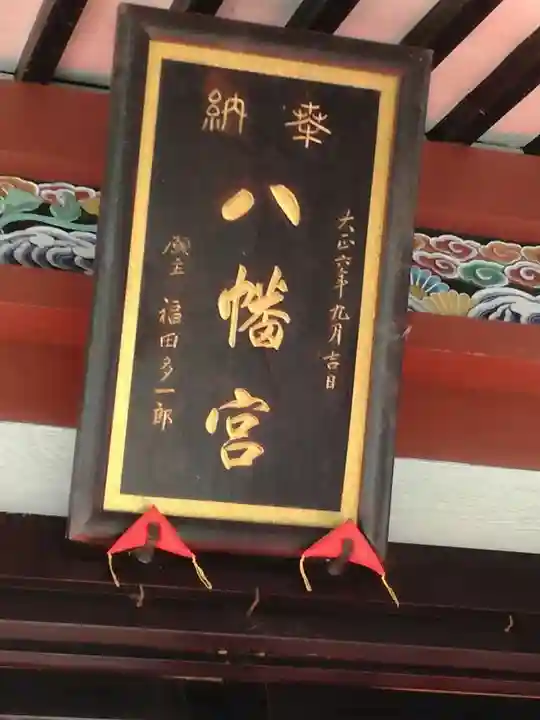 奉納
八幡宮
大正六年九月吉日
願主 福田多一郎